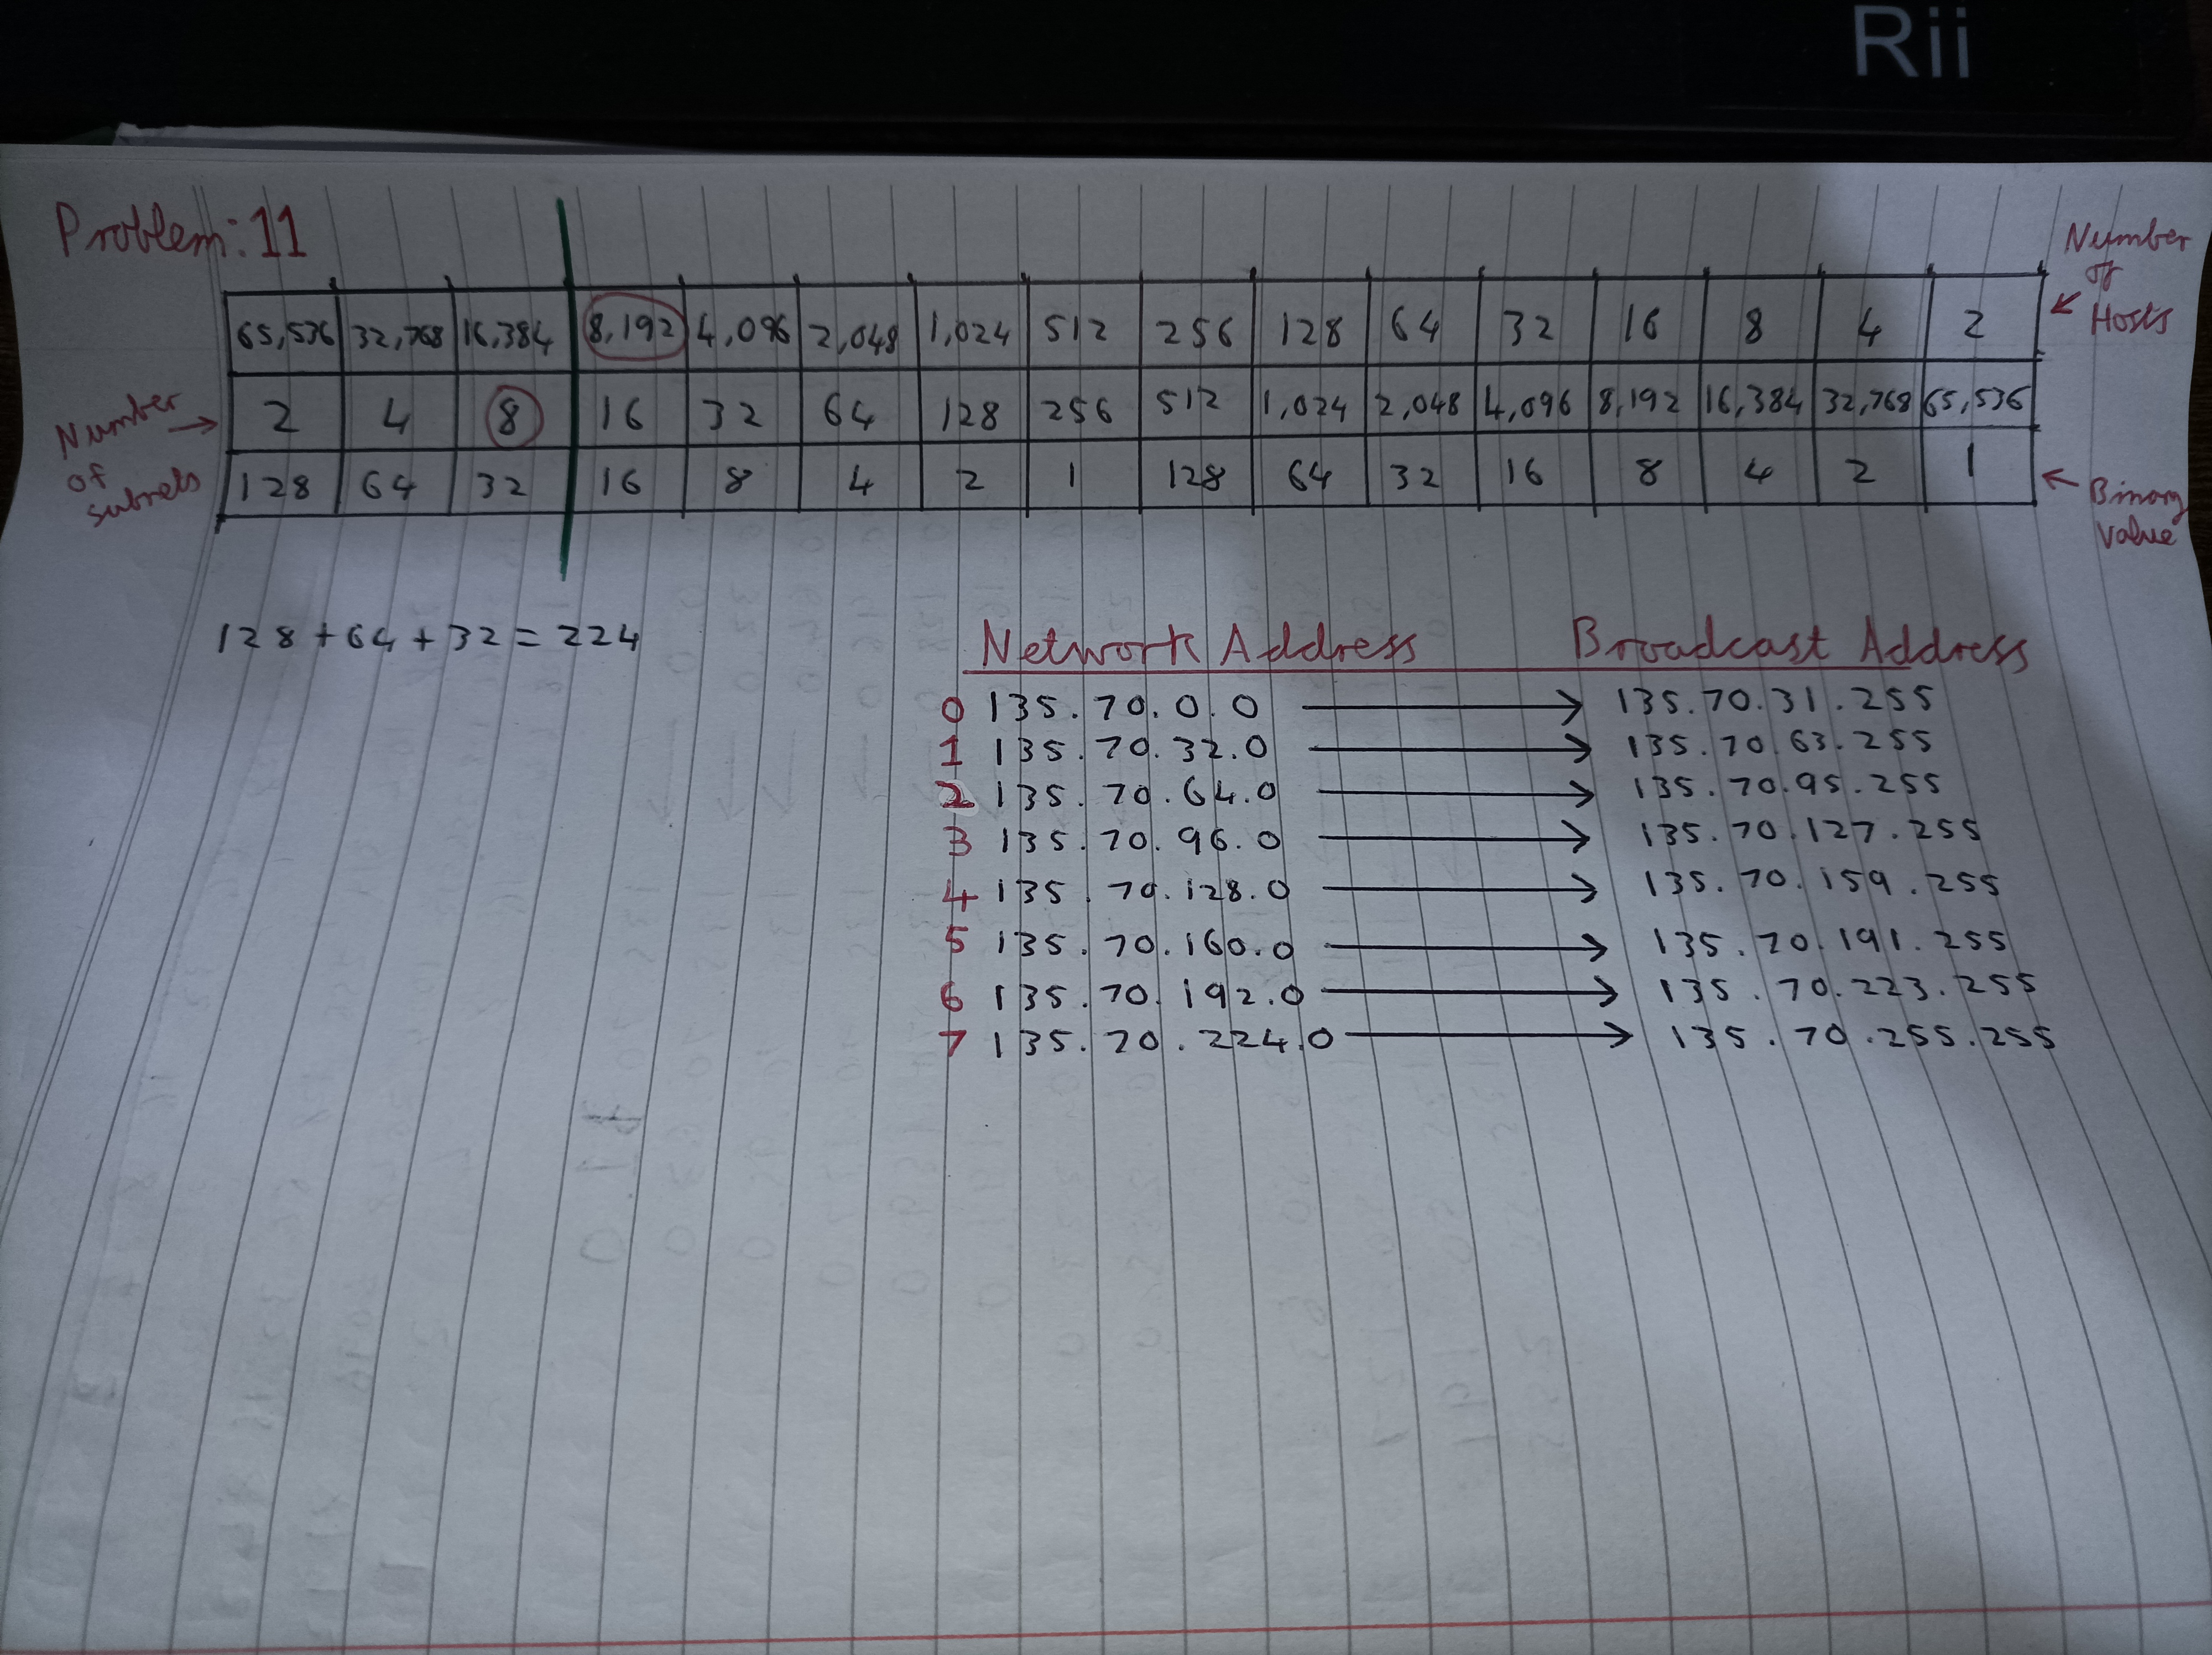 Rii
Problem: 11
Number
of
Hosts
65,536 32,768 16,384 8,192 4,096 2,048 1,024 512 256 128 64 32 16 8 4 2
Number
of
subnets
2 4 8 16 32 64 128 256 512 1,024 2,048 4,096 8,192 16,384 32,768 65,536
128 64 32 16 8 4 2 1 128 64 32 16 8 4 2 1
Binary
Value
128 + 64 + 32 = 224
Network Address Broadcast Address
0 135.70.0.0 → 135.70.31.255
1 135.70.32.0 → 135.70.63.255
2 135.70.64.0 → 135.70.95.255
3 135.70.96.0 → 135.70.127.255
4 135.70.128.0 → 135.70.159.255
5 135.70.160.0 → 135.70.191.255
6 135.70.192.0 → 135.70.223.255
7 135.70.224.0 → 135.70.255.255